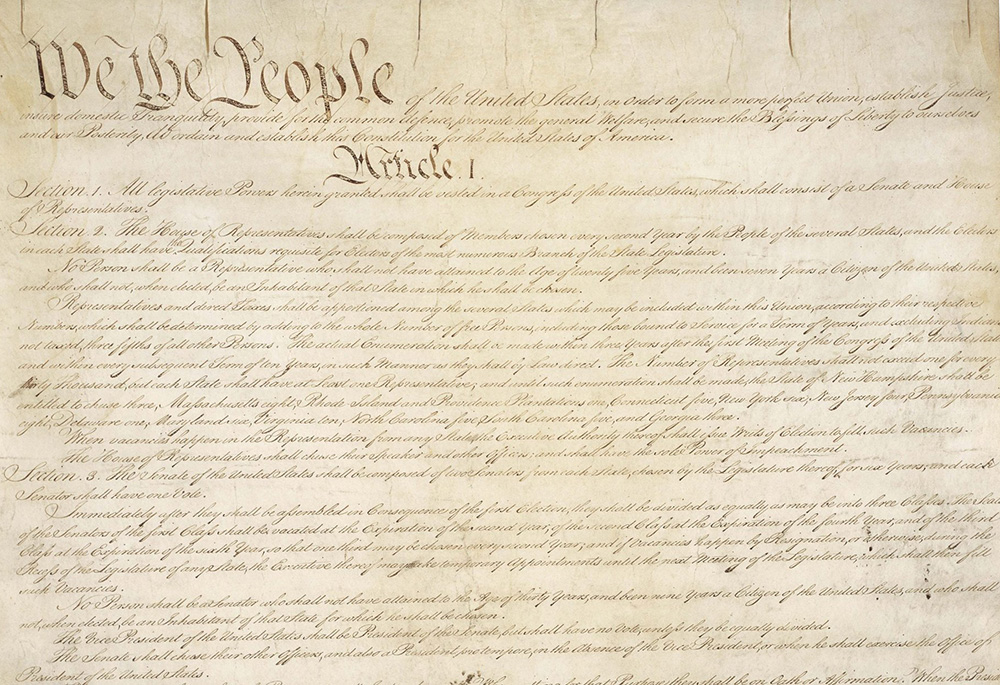 We the People of the United States, in Order to form a more perfect Union, establish Justice,
insure domestic Tranquility, provide for the common defence, promote the general Welfare, and secure the Blessings of Liberty to ourselves
and our Posterity, do ordain and establish this Constitution for the United States of America.
Article. I.
Section. 1. All legislative Powers herein granted shall be vested in a Congress of the United States, which shall consist of a Senate and House
of Representatives.
Section. 2. The House of Representatives shall be composed of Members chosen every second Year by the People of the several States, and the Electors
in each State shall have the Qualifications requisite for Electors of the most numerous Branch of the State Legislature.
No Person shall be a Representative who shall not have attained to the Age of twenty five Years, and been seven Years a Citizen of the United States,
and who shall not, when elected, be an Inhabitant of that State in which he shall be chosen.
Representatives and direct Taxes shall be apportioned among the several States which may be included within this Union, according to their respective
Numbers, which shall be determined by adding to the whole Number of free Persons, including those bound to Service for a Term of Years, and excluding Indians
not taxed, three fifths of all other Persons. The actual Enumeration shall be made within three Years after the first Meeting of the Congress of the United States,
and within every subsequent Term of ten Years, in such Manner as they shall by Law direct. The Number of Representatives shall not exceed one for every
thirty Thousand, but each State shall have at Least one Representative; and until such enumeration shall be made, the State of New Hampshire shall be
entitled to chuse three, Massachusetts eight, Rhode Island and Providence Plantations one, Connecticut five, New York six, New Jersey four, Pennsylvania
eight, Delaware one, Maryland six, Virginia ten, North Carolina five, South Carolina five, and Georgia three.
When vacancies happen in the Representation from any State, the Executive Authority thereof shall issue Writs of Election to fill such Vacancies.
The House of Representatives shall chuse their Speaker and other Officers; and shall have the sole Power of Impeachment.
Section. 3. The Senate of the United States shall be composed of two Senators from each State, chosen by the Legislature thereof, for six Years; and each
Senator shall have one Vote.
Immediately after they shall be assembled in Consequence of the first Election, they shall be divided as equally as may be into three Classes. The Seats
of the Senators of the first Class shall be vacated at the Expiration of the second Year, of the second Class at the Expiration of the fourth Year, and of the third
Class at the Expiration of the sixth Year, so that one third may be chosen every second Year; and if Vacancies happen by Resignation, or otherwise, during the
Recess of the Legislature of any State, the Executive thereof may make temporary Appointments until the next Meeting of the Legislature, which shall then fill
such Vacancies.
No Person shall be a Senator who shall not have attained to the Age of thirty Years, and been nine Years a Citizen of the United States, and who shall
not, when elected, be an Inhabitant of that State for which he shall be chosen.
The Vice President of the United States shall be President of the Senate, but shall have no Vote, unless they be equally divided.
The Senate shall chuse their other Officers, and also a President pro tempore, in the Absence of the Vice President, or when he shall exercise the Office of
President of the United States.
for that Purpose, they shall be on Oath or Affirmation. When the Presid